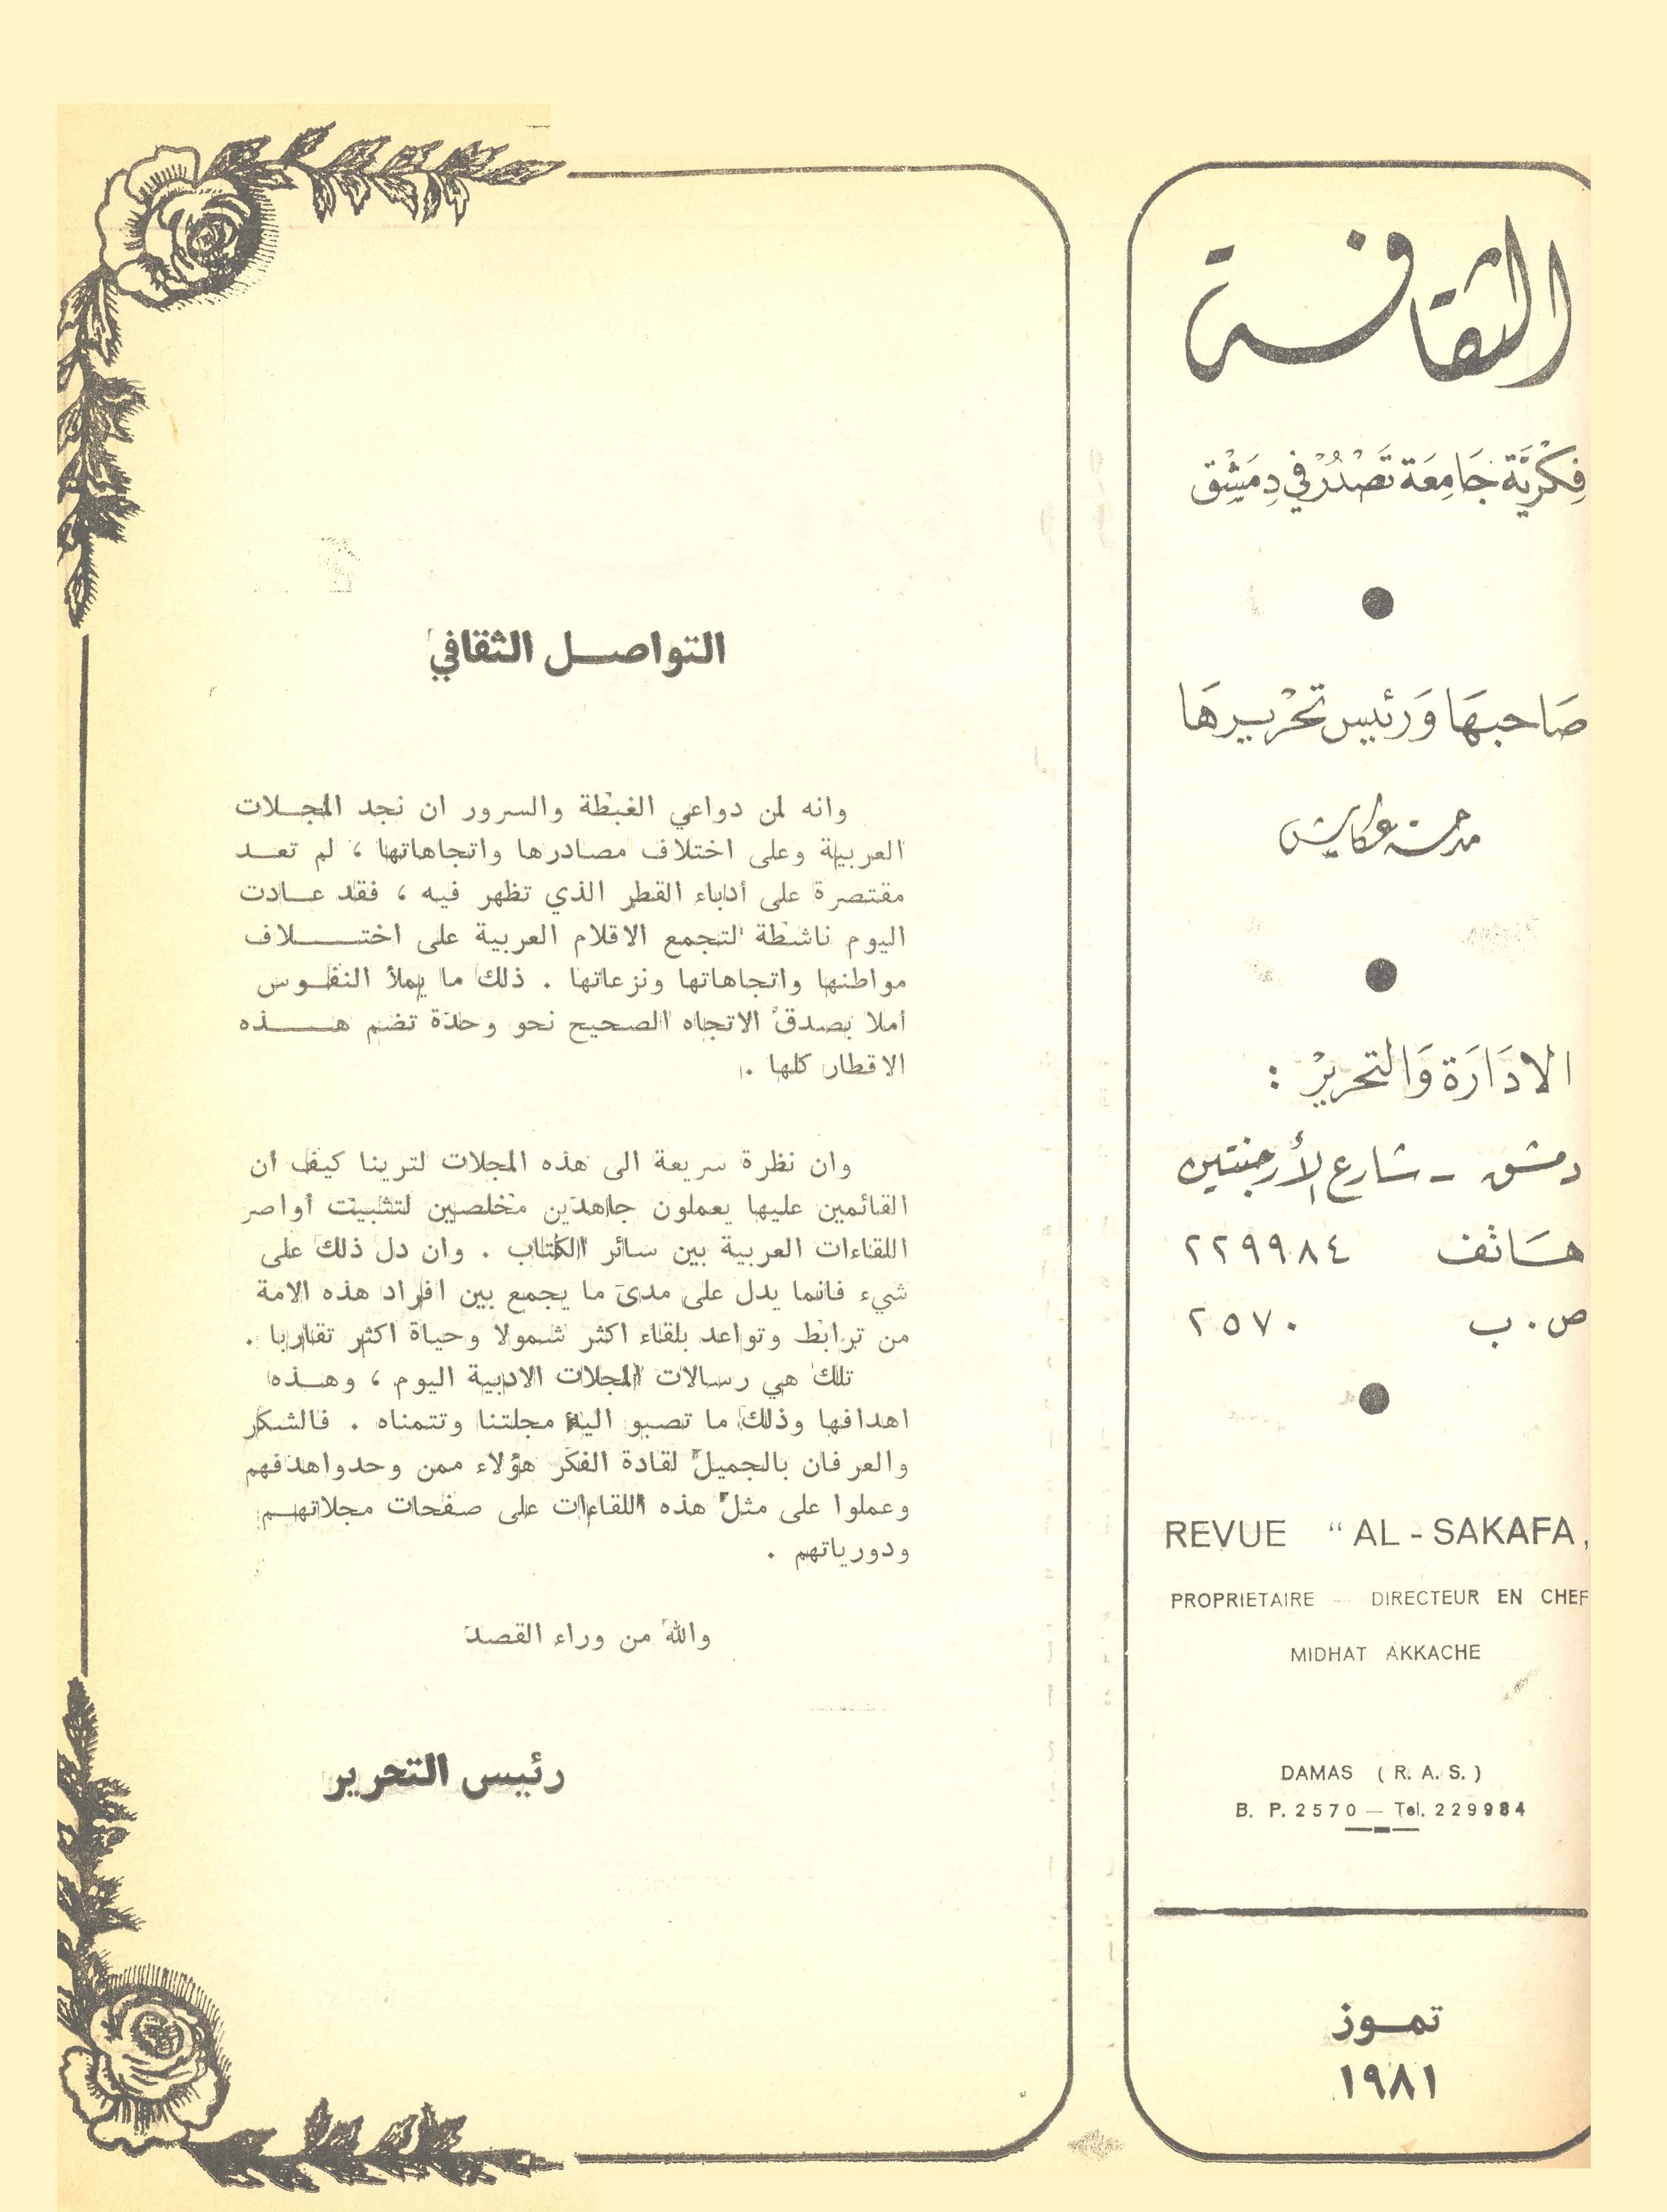 الثقافة
فِكْرِيَّة جَامِعَة تَصْدُرُ في دِمَشْق
صَاحبهَا وَرَئيس تحْريرهَا
مدحة عكاش
الادَارَة وَالتحرير :
دمشق ــ شارع الأرجنتين
هَاتف ٢٢٩٩٨٤
ص . ب ٢٥٧٠
REVUE “ AL - SAKAFA ,
PROPRIETAIRE — DIRECTEUR EN CHEF
MIDHAT AKKACHE
DAMAS ( R. A. S. )
B. P. 2570 — Tel. 229984
تمـوز
١٩٨١
التواصـل الثقافي
وانه لمن دواعي الغبطة والسرور ان نجد المجـلات
العربية وعلى اختلاف مصادرها واتجاهاتها ، لم تعـد
مقتصرة على أدباء القطر الذي تظهر فيه ، فقد عـادت
اليوم ناشطة لتجمع الاقلام العربية على اختـــلاف
مواطنها واتجاهاتها ونزعاتها . ذلك ما يملأ النفـوس
أملا بصدق الاتجاه الصحيح نحو وحدة تضم هـــذه
الاقطار كلها .
وان نظرة سريعة الى هذه المجلات لترينا كيف أن
القائمين عليها يعملون جاهدين مخلصين لتثبيت أواصر
اللقاءات العربية بين سائر الكتاب . وان دل ذلك على
شيء فانما يدل على مدى ما يجمع بين افراد هذه الامة
من ترابط وتواعد بلقاء اكثر شمولا وحياة اكثر تقاربا .
تلك هي رسالات المجلات الادبية اليوم ، وهـذه
اهدافها وذلك ما تصبو اليه مجلتنا وتتمناه . فالشكر
والعرفان بالجميل لقادة الفكر هؤلاء ممن وحدواهدفهم
وعملوا على مثل هذه اللقاءات على صفحات مجلاتهـم
ودورياتهم .
والله من وراء القصد
رئيس التحرير